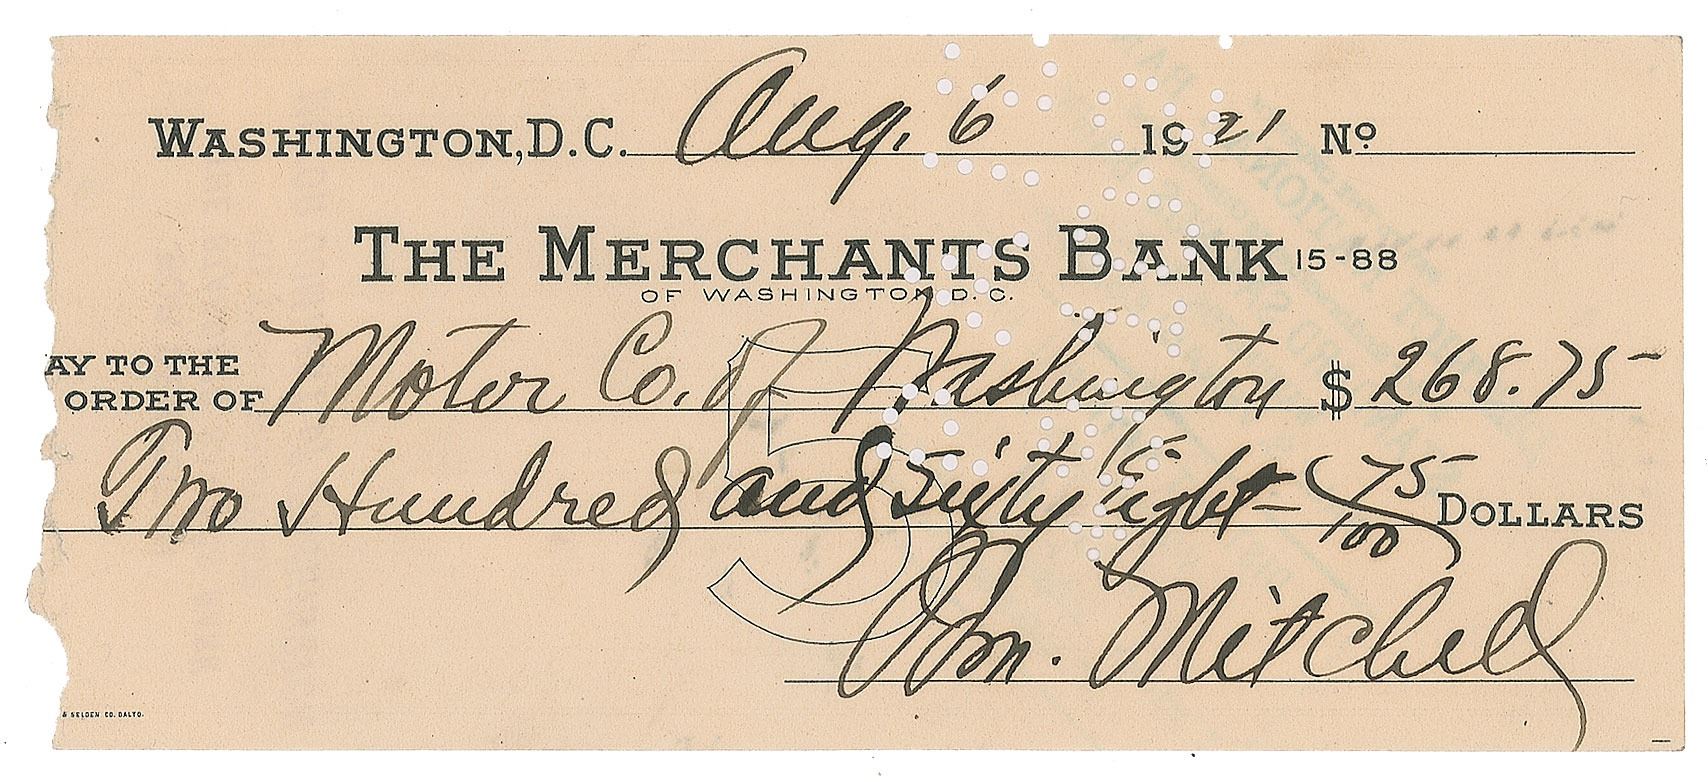 WASHINGTON, D.C. Aug. 6 1921 Nº
THE MERCHANTS BANK 15-88
OF WASHINGTON D. C.
AY TO THE
ORDER OF Motor Co. of Washington $ 268.75
Two Hundred and sixty eight 75/100 DOLLARS
5
Wm. Mitchell
& SELDEN CO. BALTO.